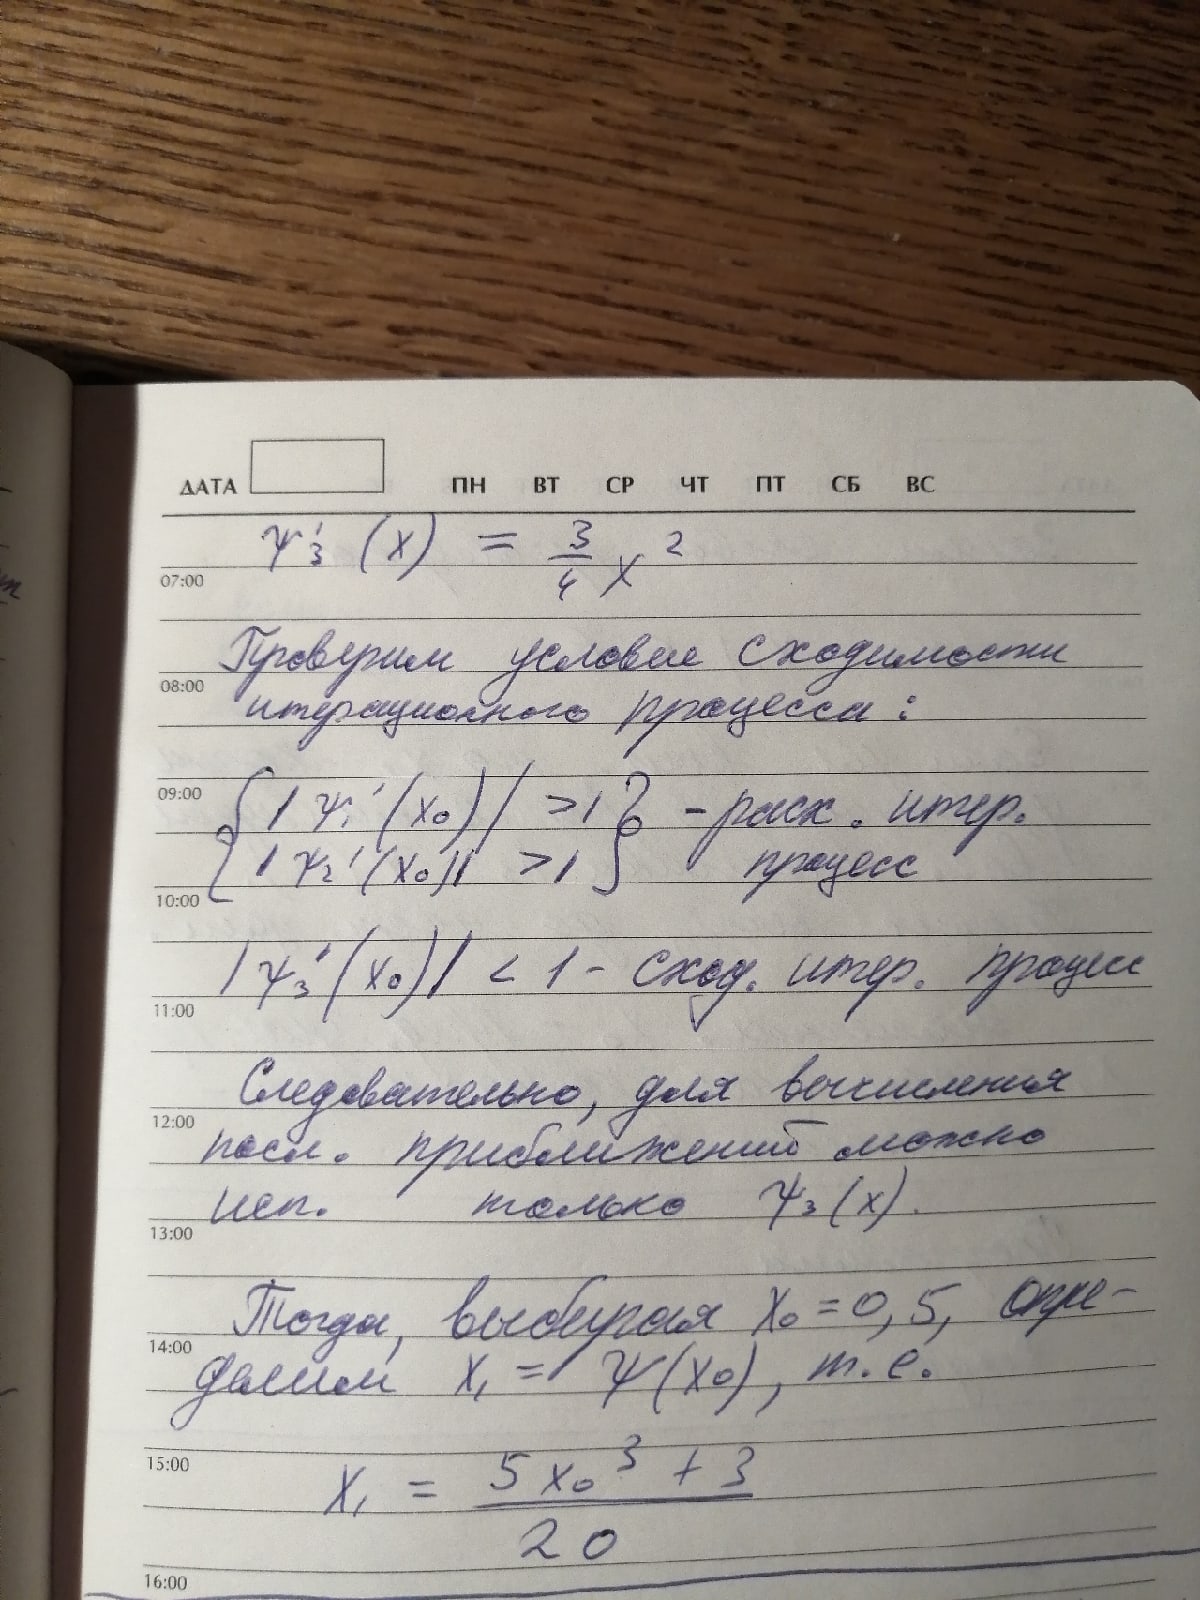 ДАТА ПН ВТ СР ЧТ ПТ СБ ВС
ψ₃'(x) = 3/4 x²
07:00
Проверим условие сходимости
08:00
итерационного процесса:
09:00
{ |ψ₁'(x₀)| >1 } - расх. итер.
|ψ₂'(x₀)| >1 процесс
10:00
|ψ₃'(x₀)| < 1 - сход. итер. процесс
11:00
Следовательно, для вычисления
12:00
посл. приближений можно
исп. только ψ₃(x).
13:00
Тогда, выбирая x₀ = 0,5, опре-
14:00
делим x₁ = ψ(x₀), т.е.
15:00
x₁ = 5x₀³ + 3
20
16:00